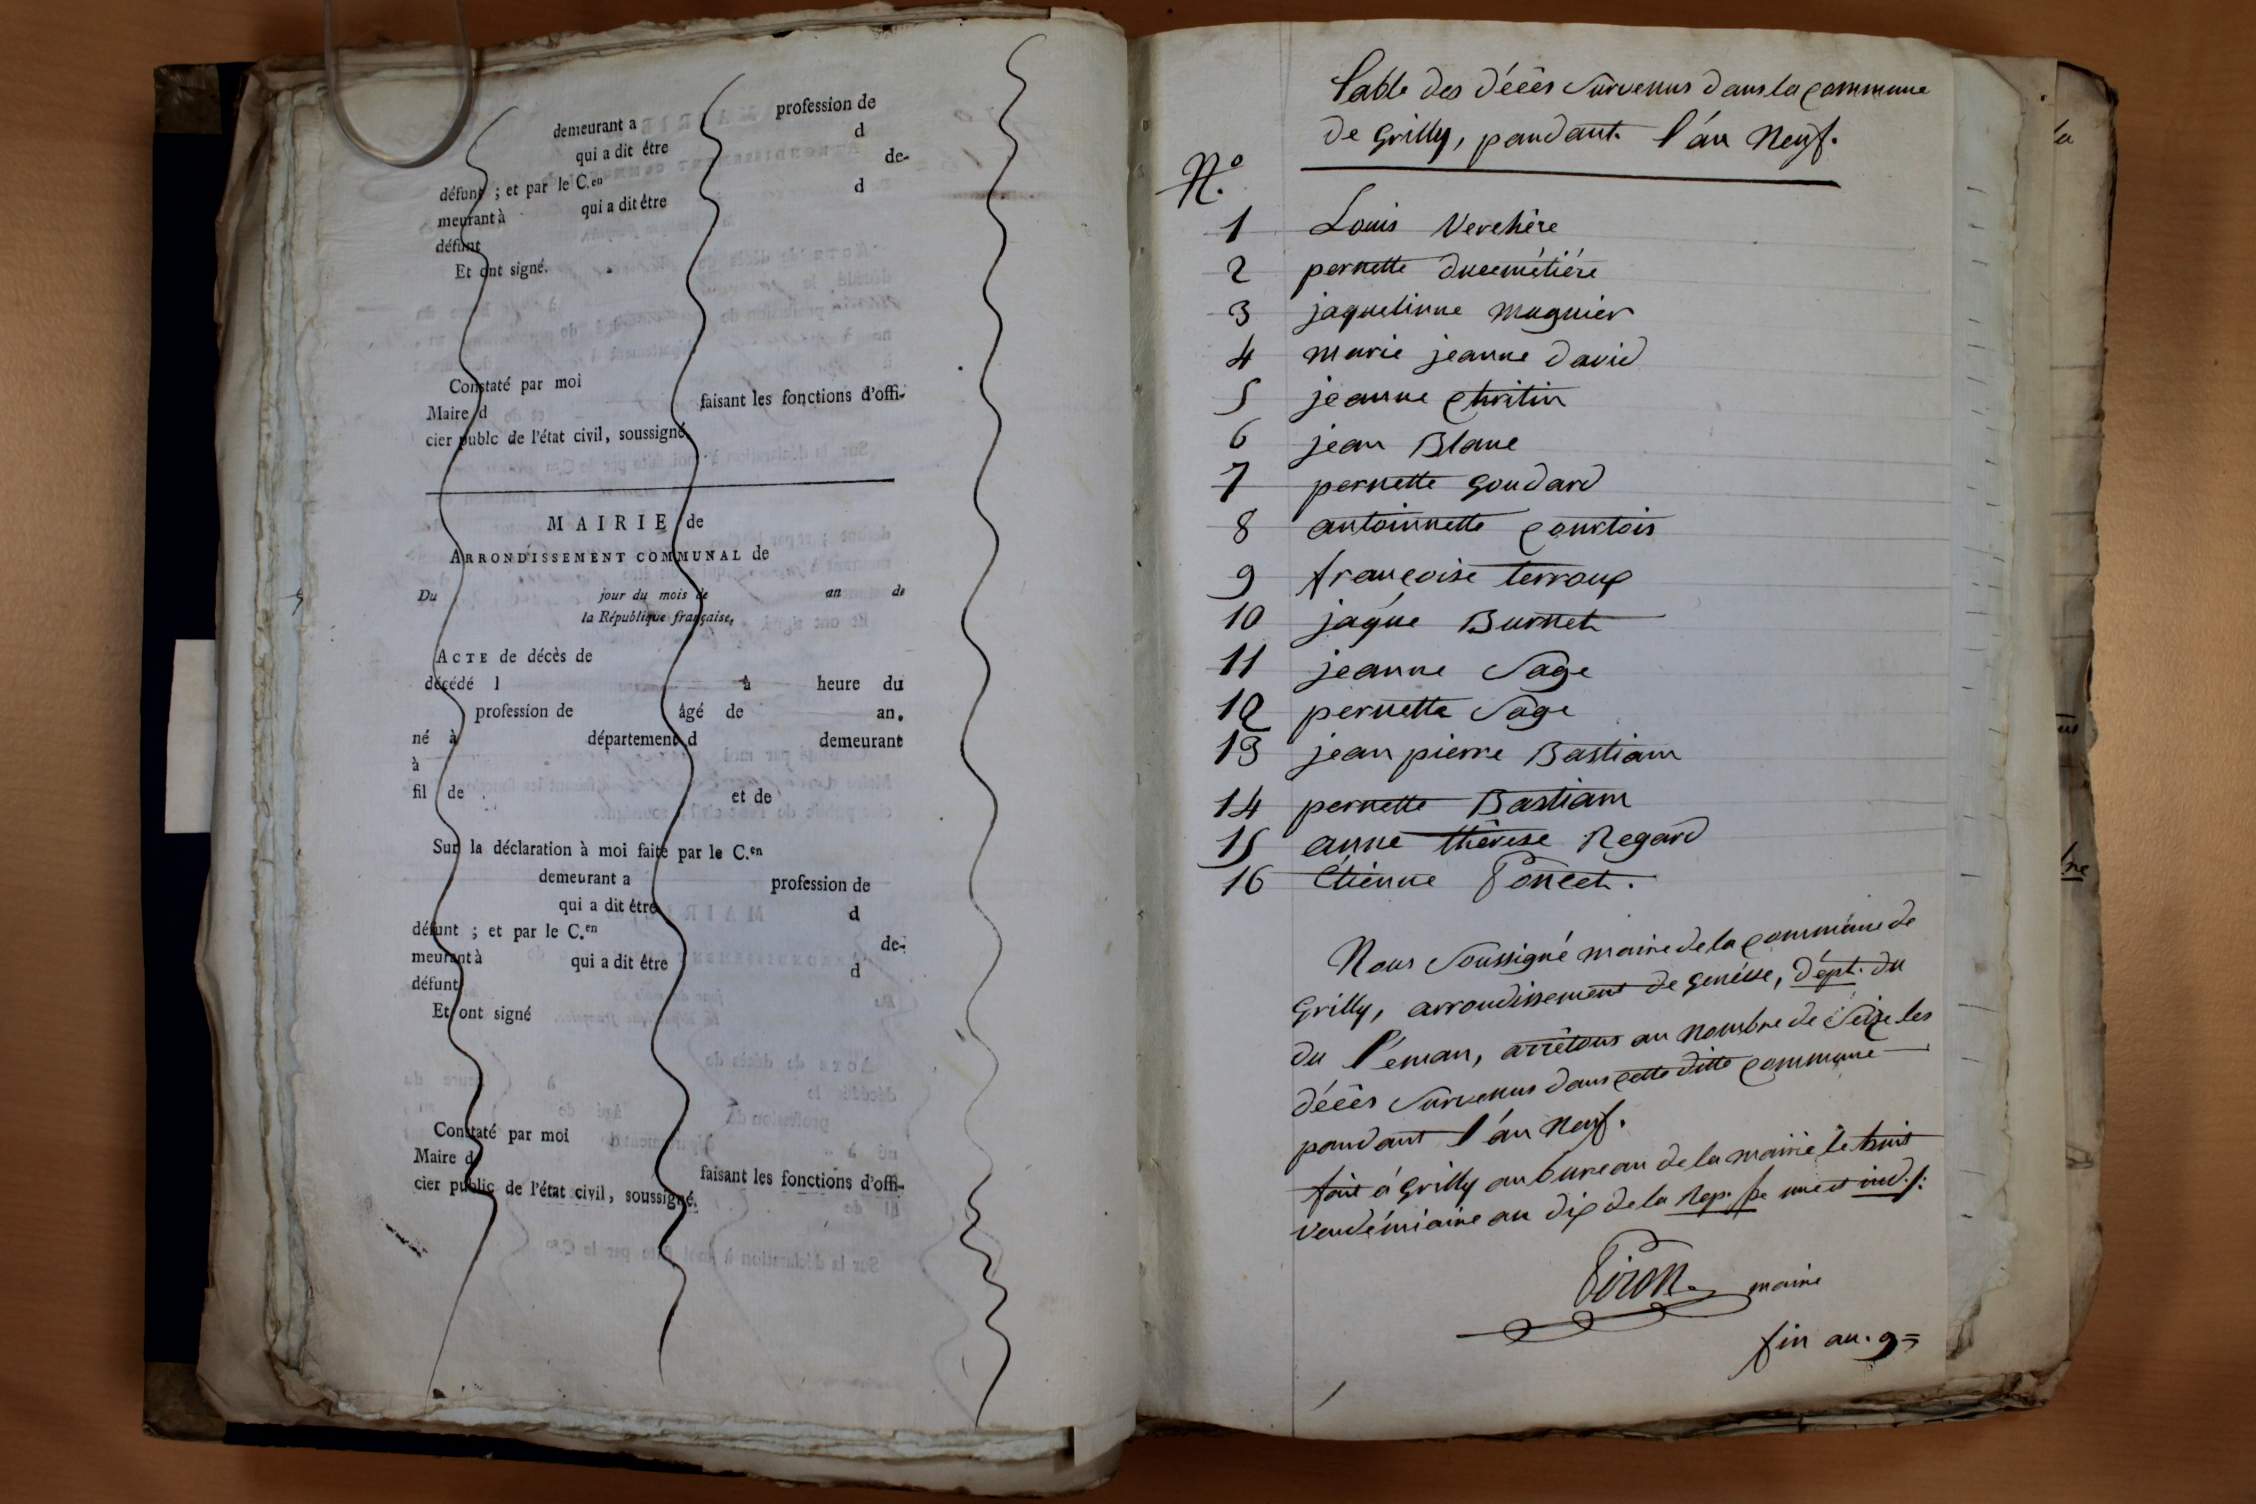 demeurant a profession de
qui a dit être d
défunt ; et par le C.en de-
meurant à qui a dit être d
défunt
Et ont signé.
Constaté par moi
Maire d faisant les fonctions d'offi-
cier publc de l'état civil, soussigné
MAIRIE de
ARRONDISSEMENT COMMUNAL de
Du jour du mois de an de
la République française,
ACTE de décès de
décédé l à heure du
profession de âgé de an.
né à département d demeurant
à
fil de et de
Sur la déclaration à moi faite par le C.en
demeurant a profession de
qui a dit être d
défunt ; et par le C.en de-
meurant à qui a dit être d
défunt
Et ont signé
Constaté par moi
Maire d faisant les fonctions d'offi-
cier public de l'état civil, soussigné.
Table des décès survenus dans la commune
de Grilly, pandant l'án Neuf.
N.º
1 Louis Verchère
2 pernette ducemétiére
3 jaquelinne Magnier
4 marie jeanne david
5 jeanne Chritin
6 jean Blanc
7 pernette Goudard
8 antoinnette Courtois
9 françoise terroux
10 jaque Burnet
11 jeanne Sage
12 pernette Sage
13 jean pierre Bastiam
14 pernette Bastiam
15 anne thérese Regard
16 Etienne Poncet.
Nous Soussigné maire de la commune de
Grilly, arrondissement de Genéve, dépt. du
du Léman, arrêtons au nombre de Seize les
décès survenus dans cette ditte commune
pandant l'án Neuf.
fait á Grilly au bureau de la mairie le huit
vendémiaire an dix de la Rep. fse une et ind.
Piron maire
fin an. 9=